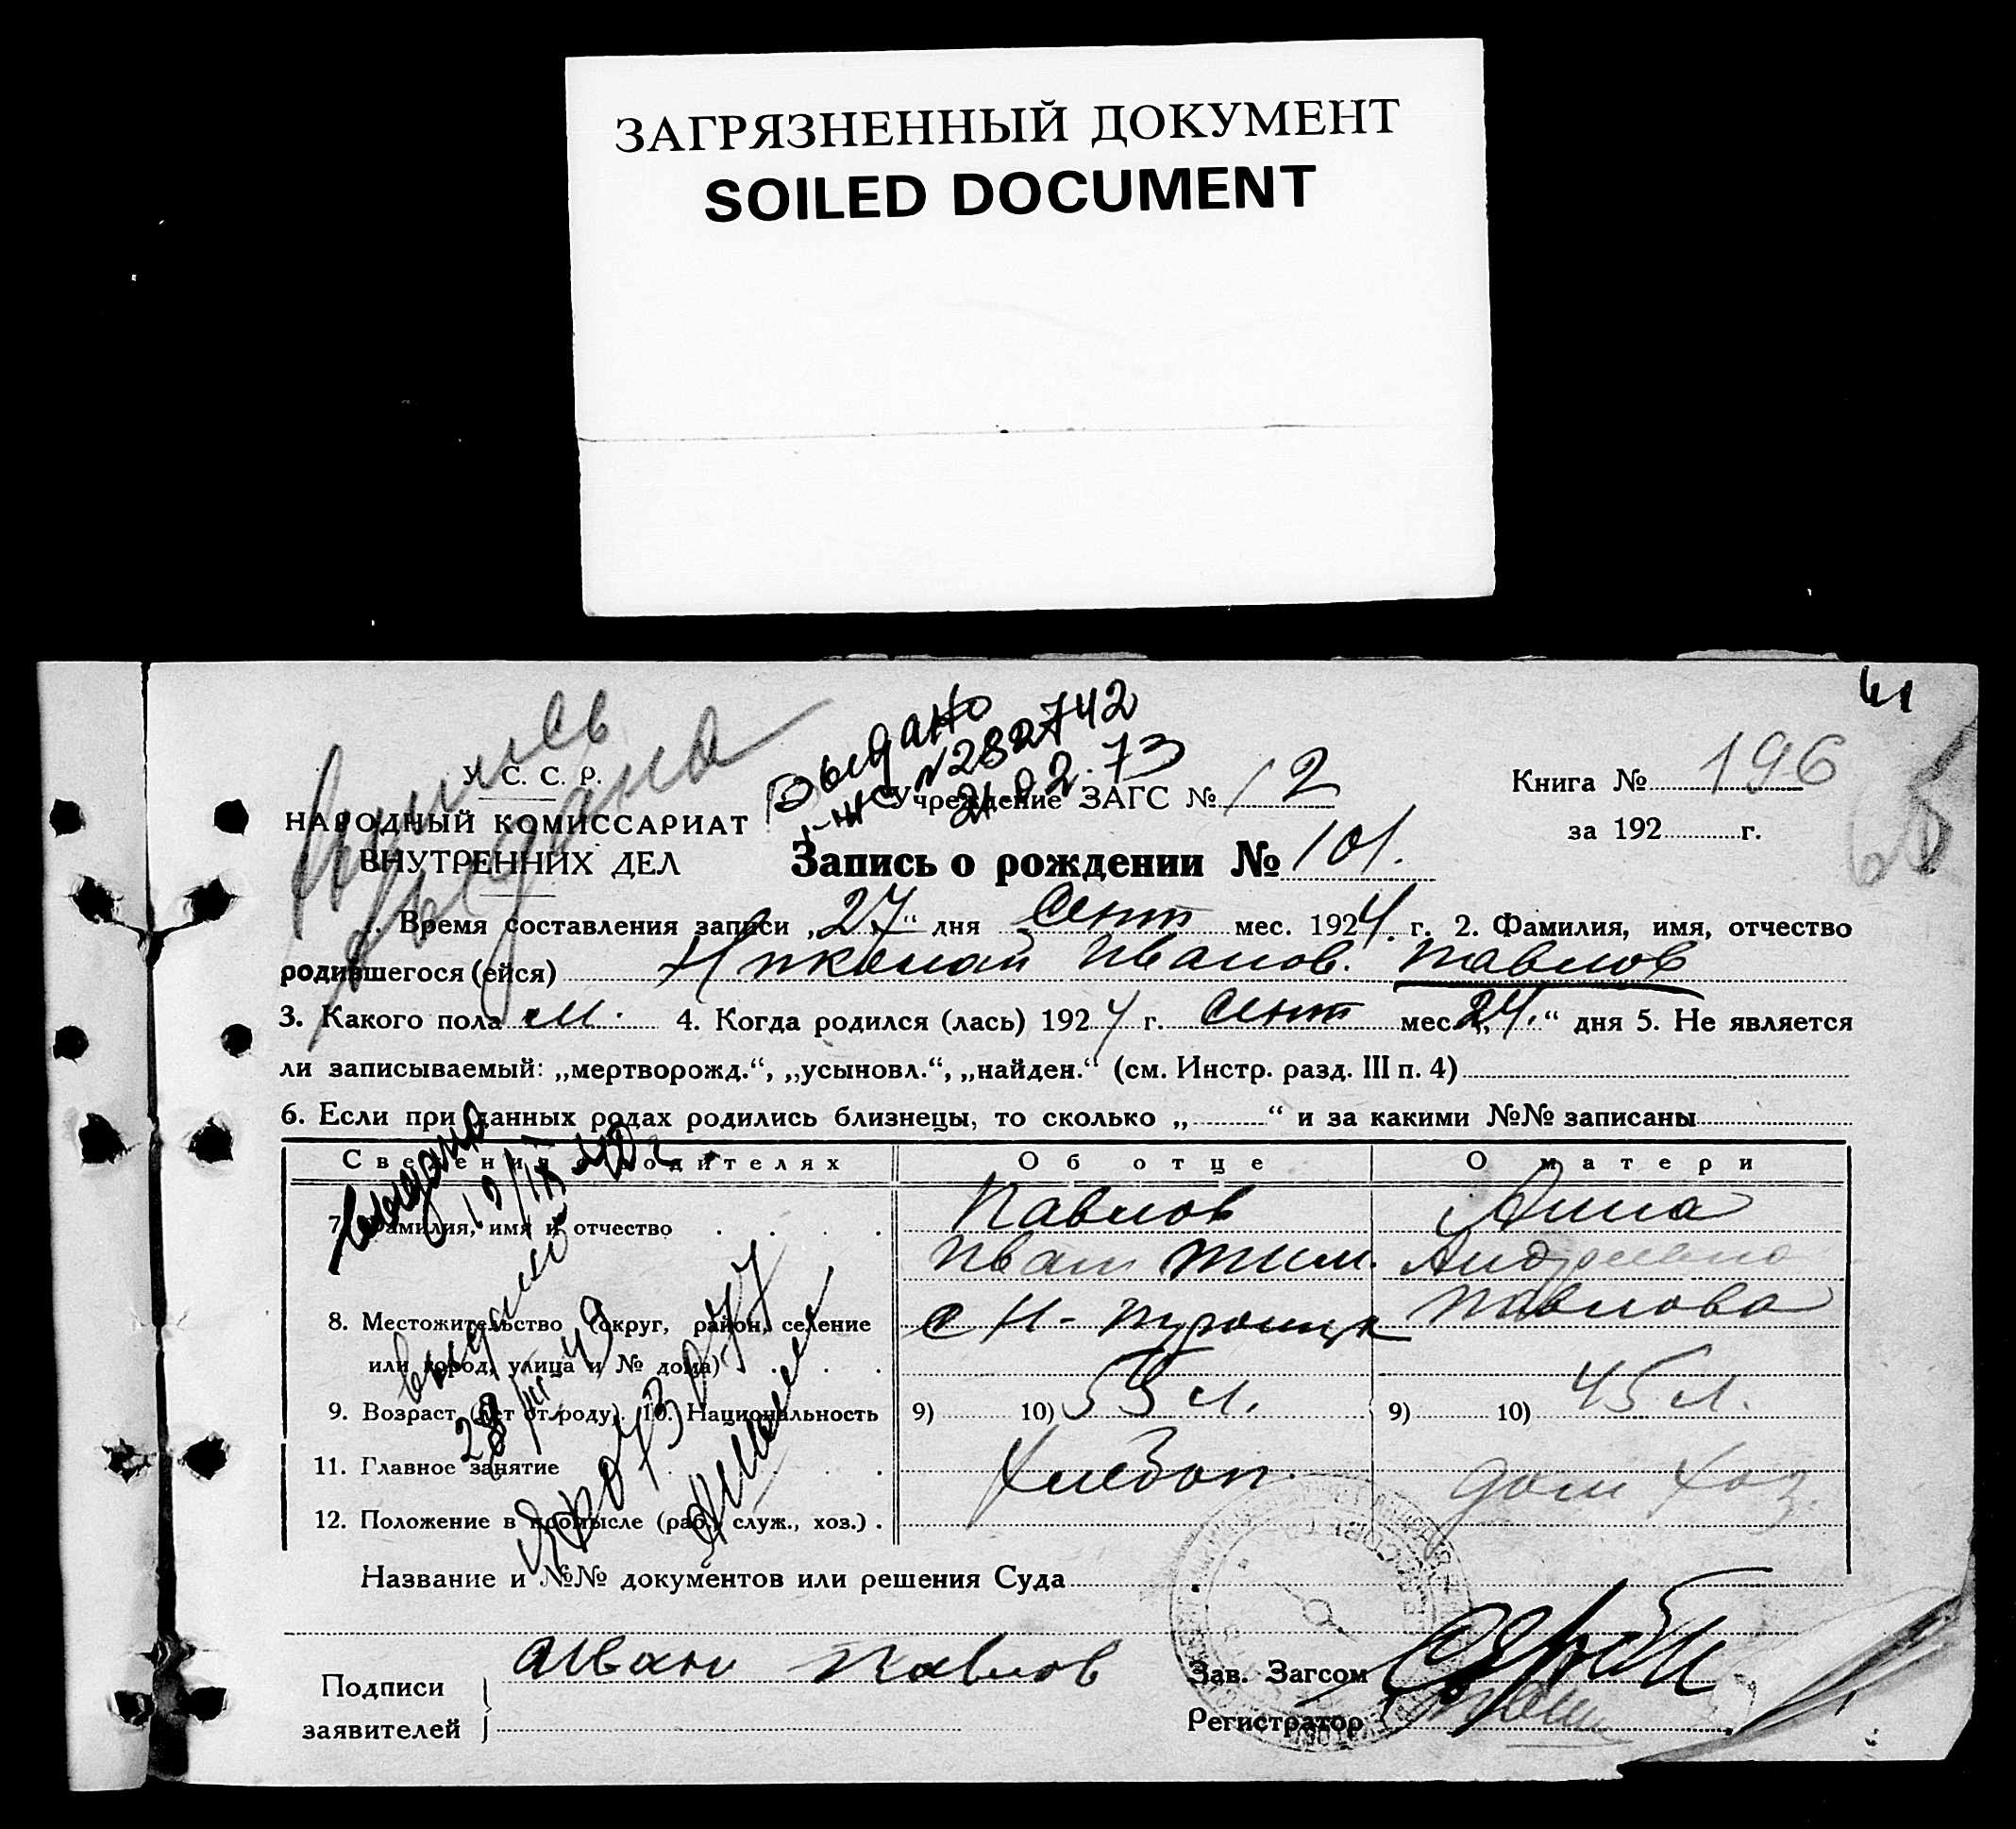 ЗАГРЯЗНЕННЫЙ ДОКУМЕНТ
SOILED DOCUMENT
41
65
Копись выдана
Выдано
№ 282742
21.02.73
У. С. С. Р.
НАРОДНЫЙ КОМИССАРИАТ
ВНУТРЕННИХ ДЕЛ
Учреждение ЗАГС № 12
Книга № 196
за 192 г.
Запись о рождении № 101.
1. Время составления записи „27“ дня Сент мес. 1924 г. 2. Фамилия, имя, отчество
родившегося (ейся) Николай Иванов. Павлов
3. Какого пола м. 4. Когда родился (лась) 1924 г. Сент мес. „24.“ дня 5. Не является
ли записываемый: „мертворожд.“, „усыновл.“, „найден.“ (см. Инстр. разд. III п. 4)
6. Если при данных родах родились близнецы, то сколько „ “ и за какими №№ записаны
Сведения о родителях Об отце О матери
7. Фамилия, имя и отчество Павлов Анна
Иван Тим. Андреевна
8. Местожительство (округ, район, селение с Н-Троицк Павлова
или город, улица и № дома)
9. Возраст (лет от роду). 10. Национальность 9) 10) 55 л. 9) 10) 45 л.
11. Главное занятие Хлебоп. дом хоз.
12. Положение в промысле (раб., служ., хоз.)
выдано
12/IX 40 г
28/III 49
Название и №№ документов или решения Суда
Подписи
заявителей
Иван Павлов
Зав. Загсом
Регистратор